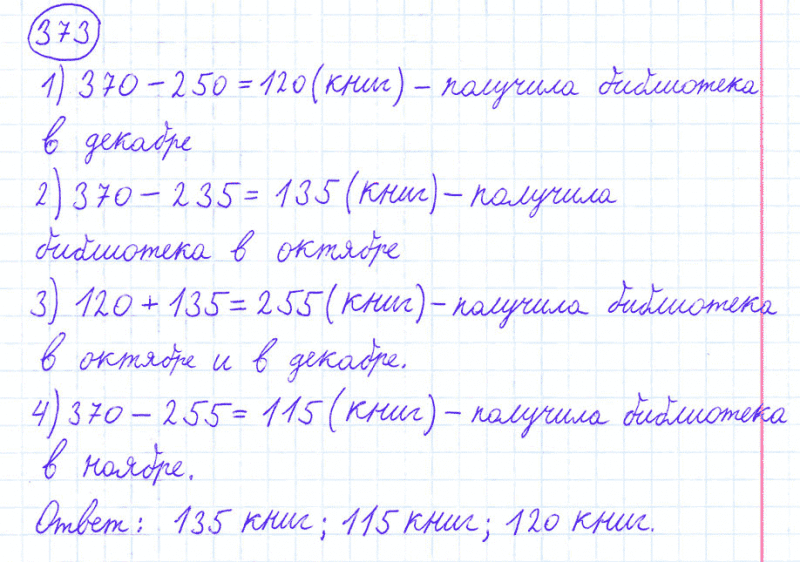 373
1) 370 - 250 = 120 (книг) - получила библиотека
в декабре
2) 370 - 235 = 135 (книг) - получила
библиотека в октябре
3) 120 + 135 = 255 (книг) - получила библиотека
в октябре и в декабре.
4) 370 - 255 = 115 (книг) - получила библиотека
в ноябре.
Ответ: 135 книг; 115 книг; 120 книг.